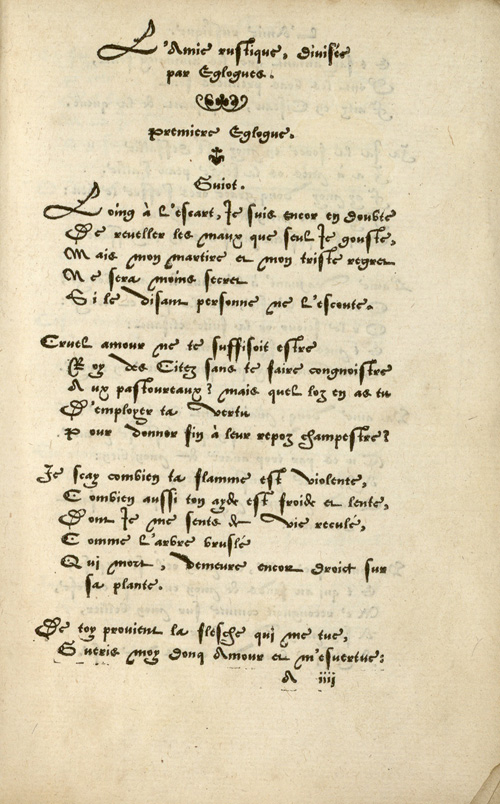 L'Amie rustique, divisée
par Eglogues.
Premiere Eglogue.
Guiot.
Loing à l'escart, Je suis encor en doubte
De reveller les maux que seul Je gouste,
Mais mon martire et mon triste regret
Ne sera moins secret
Si le disant personne ne l'escoute.
Cruel amour ne te suffisoit estre
Roy des Citez sans te faire congnoistre
Aux pastoureaux? mais quel loz en as tu
D'employer ta vertu
Pour donner fin à leur repoz champestre?
Je scay combien ta flamme est violente,
Combien aussi ton ayde est froide et lente,
Dont Je me sents de vie reculé,
Comme l'arbre bruslé
Qui mort, demeure encor droict sur
sa plante.
De toy provient la flesche qui me tue,
Gueris moy donq Amour et m'esvertue:
A iiii